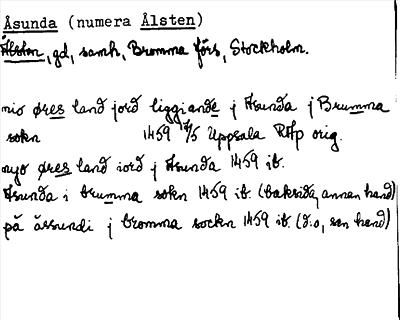 Åsunda (numera Ålsten)
Ålsten, gd, samh, Bromma förs, Stockholm.
nio øres land jord liggiande j Asunda j Brumma
sokn 1459 17/5 Uppsala RAp orig.
nyo øres land iord j Asunda 1459 ib.
Asunda i brumma sokn 1459 ib. (baksida, annan hand)
på åssundi j bromma sockn 1459 ib. (d:o, sen hand)